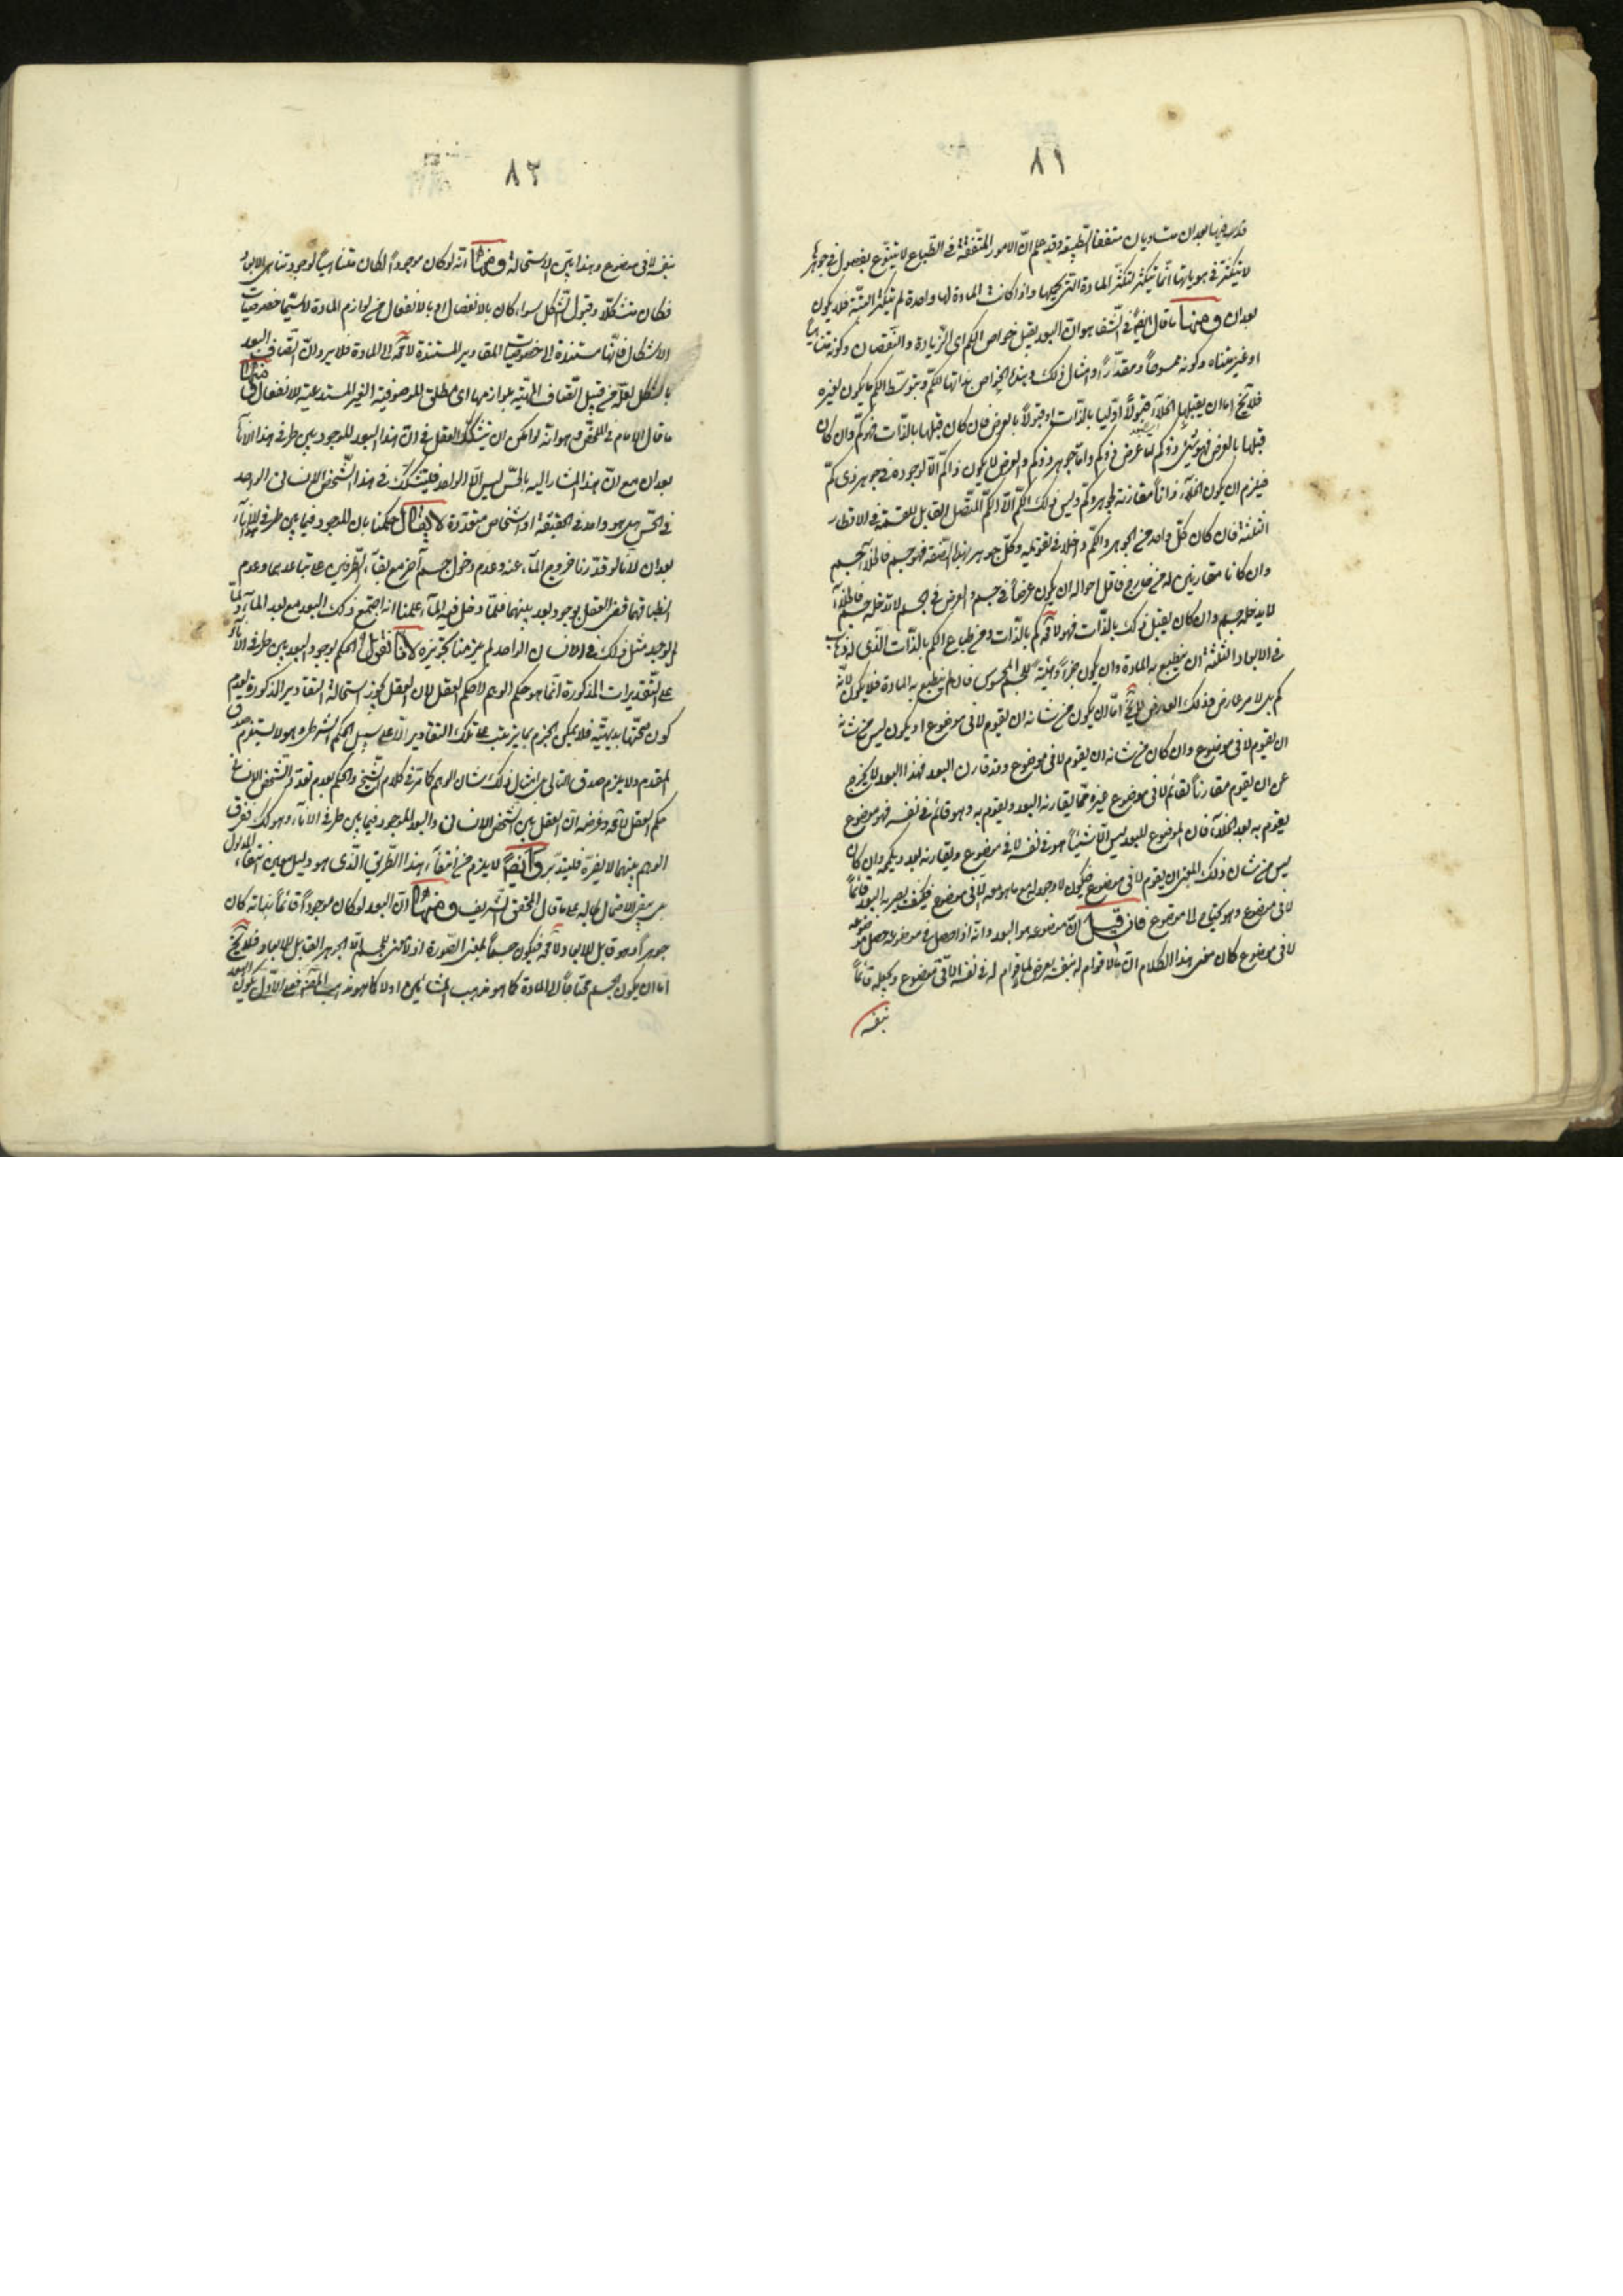 ٨١
قدر فيها بعدان متساويان متفقا الطبيعة وقد علم انّ الامور المتّفقة فى الطّباع لا يتنوّع بفصول فى جوهرها
لا يتكثر فى هوياتها انّما يتكثّر لتكثّر المادة التى تحملها واذا كانت المادة لها واحدة لم يتكثّر البتّة فلا يكون
بعدان ومنها ما قال ايضاً فى الشّفا هو انّ البعد يقبل خواص الكم اى الزّيادة والنّقصان وكونه متناهياً
او غير متناه وكونه ممسوحاً ومقدّراً وامثال ذلك وهذه الخواص بذاتها للكمّ وبتوسّط الكم ما يكون لغيره
فلا يخ اما ان يقبلها الخلآء قبولاً اوّليا بالذّات او قبولاً بالعرض فان كان قبلها بالذّات فهو كمّ وان كان
قبلها بالعرض فهو شئ ذو كم اما عرض ذو كم واما جوهر ذو كم والعرض لا يكون ذا كمّ الّا لوجوده فى جوهر ذى كمّ
فيلزم ان يكون الخلآء ذاتاً مقارنة لجوهر وكمّ وليس ذلك الكمّ الّا الكمّ المتّصل القابل للقسمة فى الاقطار
الثلثة فان كان كلّ واحد من الجوهر والكمّ داخلا فى تقويمه وكلّ جوهر بهذا الصّفة فهو جسم فالخلآء جسم
وان كانا مقارنين له من خارج فاقل احواله ان يكون عرضاً فى جسم والعرض فى الجسم لا يدخله جسم فالخلآء
لا يدخله جسم وان كان يقبل ذلك بالذّات فهو لا محة كم بالذّات ومن طباع الكم بالذّات الّذى له ذهاب
فى الابعاد الثلثة ان ينطبع به المادة وان يكون جزءاً وهيئة للجسم المحسوس فان لم ينطبع به المادة فلا يكون لانّه
كم بل لامر عارض فذلك العارض لا يخ امّا ان يكون من شانه ان يقوم لا فى موضوع او يكون ليس من شانه
ان يقوم لا فى موضوع وان كان من شانه ان يقوم لا فى موضوع وقد قارن البعد فهذا البعد لا يخرج
عن ان يقوم مقارناً لقائم لا فى موضوع غيره ممّا يقارنه البعد ويقوم به وهو قائم فى نفسه فهو موضوع
يقوم به بعد الخلآء فان الموضوع للبعد ليس الّا شيئاً هو فى نفسه لا فى موضوع ويقارنه بعد ويكمه وان كان
ليس من شان ذلك المعنى ان يقوم لا فى موضوع فيكون لا وجد له مع ما هو معه الّا فى موضوع فكيف يصير به البعد قائماً
لا فى موضوع وهو يحتاج الى موضوع فان قيل انّ موضوعه هو البعد وانّه اذا حصل فى موضوعه جعل موضوعه
لا فى موضوع كان معنى هذا الكلام ان ما لا قوام له بنفسه يعرض لما لا قوام له فى نفسه الّا فى موضوع ويجعله قائماً
بنفسه
٨٢
بنفسه لا فى موضوع وهذا بيّن الاستحالة ومنها انّه لو كان موجوداً لكان متناهياً لوجود تناهى الابعاد
فكان متشكّلاً وقبول الشّكل سواء كان بالانفصال او بالانفعال من لوازم المادة لا سيّما خصوصيّات
الاشكال فانّها مستندة الى خصوصيّات المقادير المستندة لا محة الى المادة فلا يرد انّ اتّصاف البعد
بالشكل لعلّه من قبيل اتّصاف المهيّة بلوازمها اى مطلق الموصوفيّة الغير المستدعية للانفعال ومنها
ما قال الامام فى الملخّص وهو انه لو امكن ان يتشكّك العقل فى انّ هذا البعد الموجود بين طرفى هذا الانآء
بعدان مع انّ هذا المشار اليه بالحسّ ليس الّا الواحد فليتشكّك فى هذا الشّخص الانسانى الواحد
فى الحسّ هل هو واحد فى الحقيقة او اشخاص متعدّدة لا يقال حكمنا بان الموجود فيما بين طرفى الانآء
بعدان لانّا لو قدّرنا خروج المآء عنه وعدم دخول جسم آخر مع بقآء الطّرفين على تباعدهما وعدم
انطباقهما قضى العقل بوجود بعد بينهما فلمّا دخل فيه المآء علمنا انه اجتمع ذلك البعد مع بعد المآء ولمّا
لم يوجد مثل ذلك فى الانسان الواحد لم يلزمنا تجويزه لانّا نقول الحكم بوجود البعد بين طرفى الانآء
على التّقديرات المذكورة انّما هو حكم الوهم لا حكم العقل لان العقل يجوّز استحالة التقادير المذكورة لعدم
كون صحّتها بديهيّة فلا يمكن الجزم بما يترتب على تلك التقادير الّا على سبيل الحكم الشّرطى وهو لا يستلزم صدق
المقدم ولا يلزم صدق التالى بل امثال ذلك شان الوهم كما مرّ فى كلام الشّيخ والحكم بعدم تعدّد الشّخص الانسانى
حكم العقل لا محة وغرضه انّ العقل بين الشّخص الانسانى والبعد الموجود فيما بين طرفى الانآء وهو كك ففرق
الوهم بينهما لا يضرّه فليتدبّر وايضاً لا يلزم من انتفآء هذا الطّريق الّذى هو دليل معين انتفآء المدلول
بل يبقى الاحتمال بحاله على ما قال المحقق الشّريف ومنها انّ البعد لو كان موجوداً قائماً بذاته كان
جوهراً وهو قابل للابعاد لا محة فيكون جسماً بمعنى الصّورة اذ لا معنى للجسم الّا الجوهر القابل للابعاد فلا يخ
امّا ان يكون الجسم محتاجاً الى المادة كما هو مذهب المشائين او لا كما هو مذهب فعلى الاوّل يكون البعد